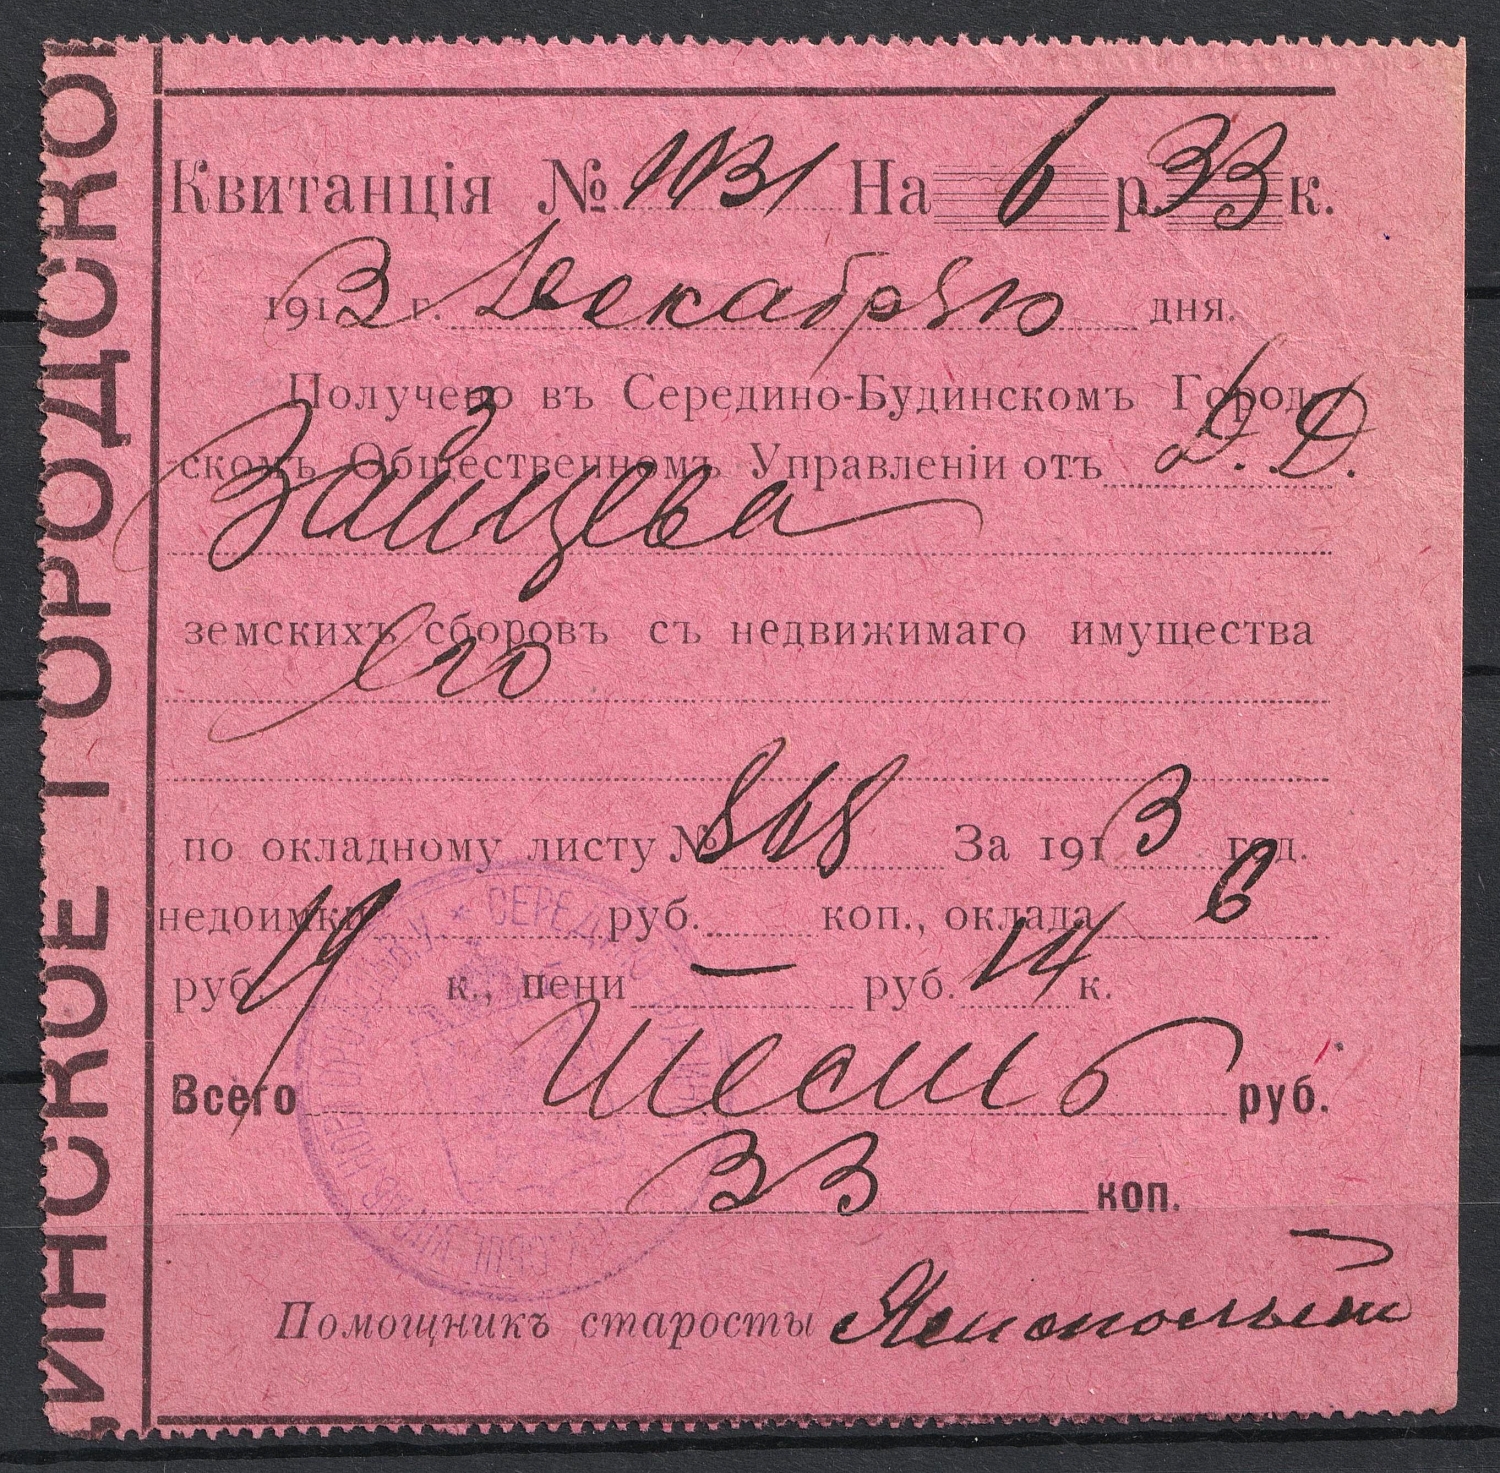 ИНСКОЕ ГОРОДСКО
Квитанція № 1131 На 6 р. 33 к.
1913 г. Декабря 10 дня.
Получено въ Середино-Будинскомъ Город-
скомъ Общественномъ Управленіи отъ Д. Д.
3
Зайцева
земскихъ сборовъ съ недвижимаго имущества
его
по окладному листу № 818 За 1913 год.
недоимки руб. коп., оклада 6
руб. 19 к., пени — руб. 14 к.
Всего Шесть руб.
33 коп.
Помощникъ старосты